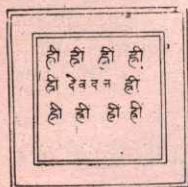 ह्री ह्रीं ह्रीं ह्री
ह्री देवदत्त ह्री
ह्रीं ह्रीं ह्रीं ह्रीं